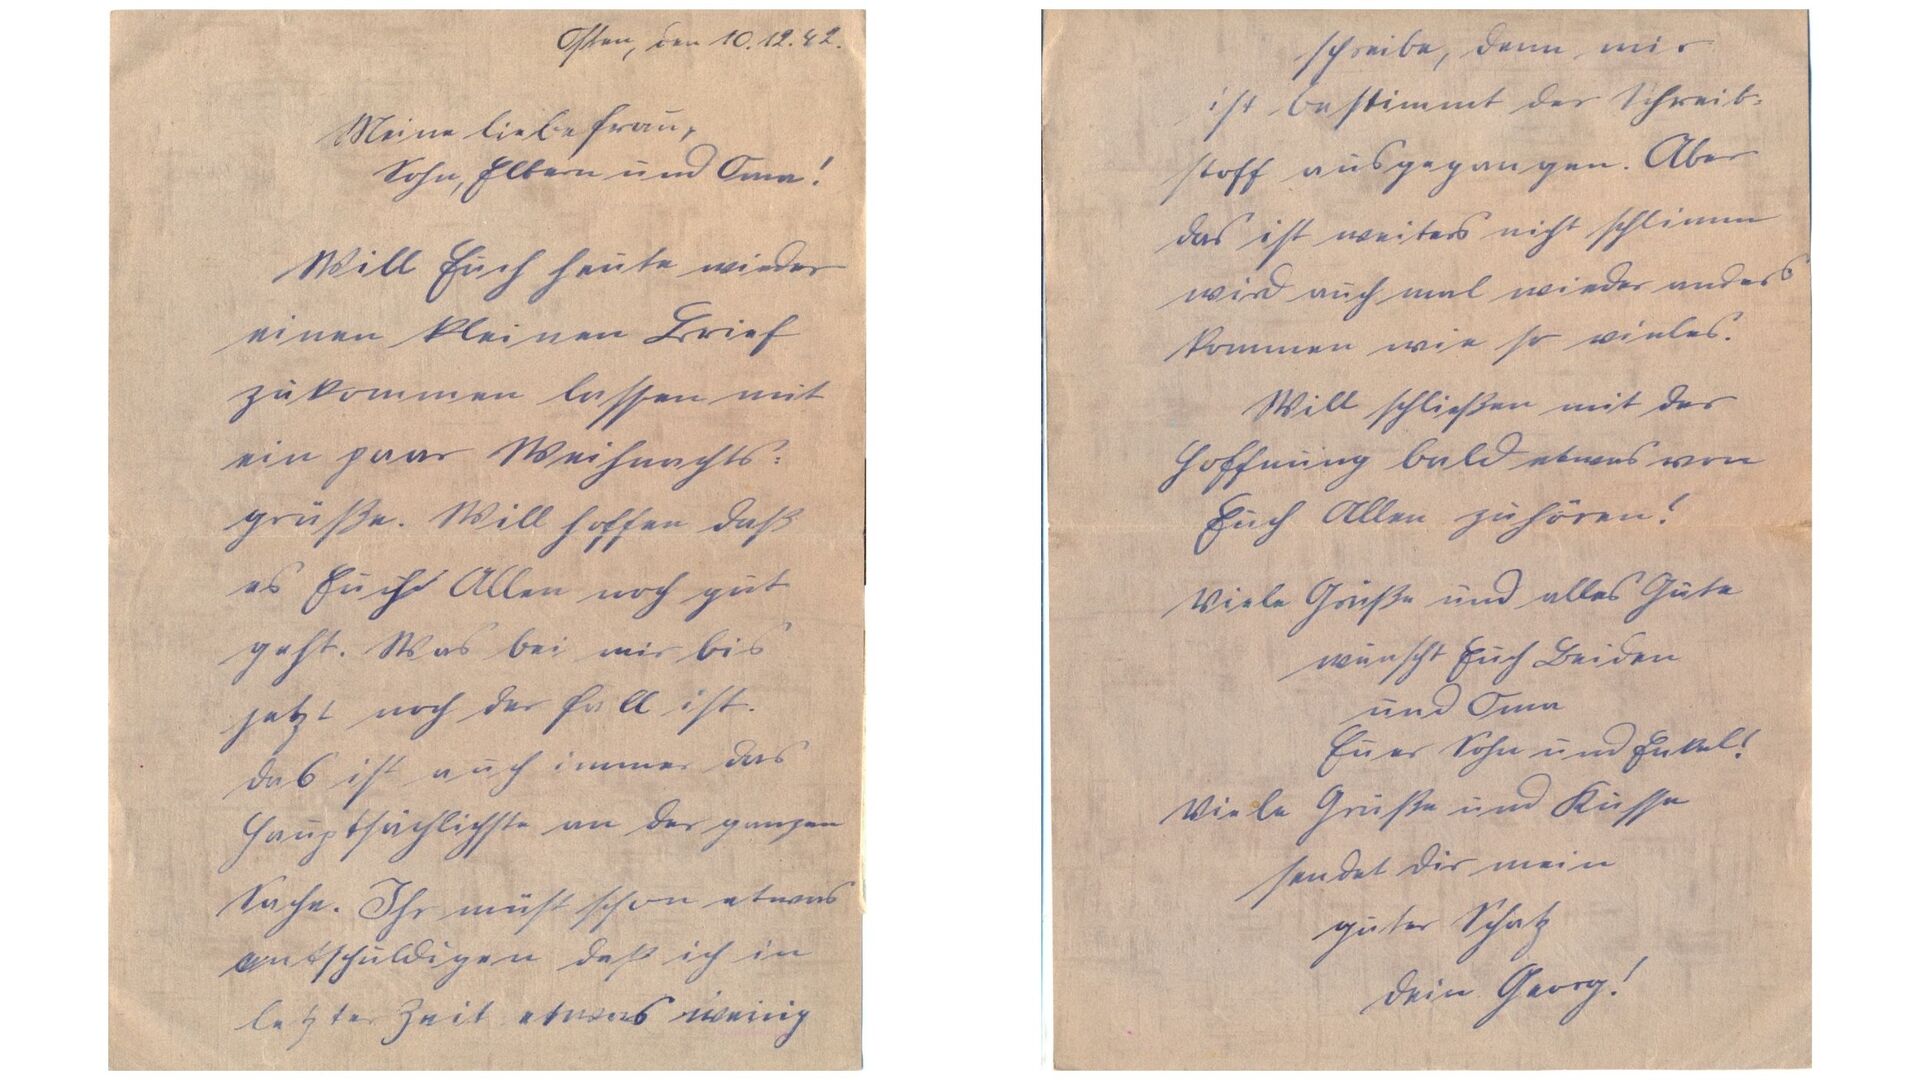 Osten, den 10.12.42.
Meine liebe Frau,
Sohn, Eltern und Oma!
Will Euch heute wieder
einen kleinen Brief
zukommen lassen mit
ein paar Weihnachts-
grüße. Will hoffen daß
es Euch Allen noch gut
geht. Was bei mir bis
jetzt noch der Fall ist.
das ist auch immer das
Hauptsächlichste an der ganzen
Sache. Ihr müßt schon etwas
entschuldigen daß ich in
letzter Zeit etwas wenig
schreibe, denn mir
ist bestimmt der Schreib-
stoff ausgegangen. Aber
das ist weiters nicht schlimm
wird auch mal wieder anders
kommen wie so vieles.
Will schließen mit der
Hoffnung bald etwas von
Euch Allen zuhören!
Viele Grüße und alles Gute
wünscht Euch Beiden
und Oma
Euer Sohn und Enkel!
Viele Grüße und Küsse
sendet dir mein
guter Schatz
dein Georg!